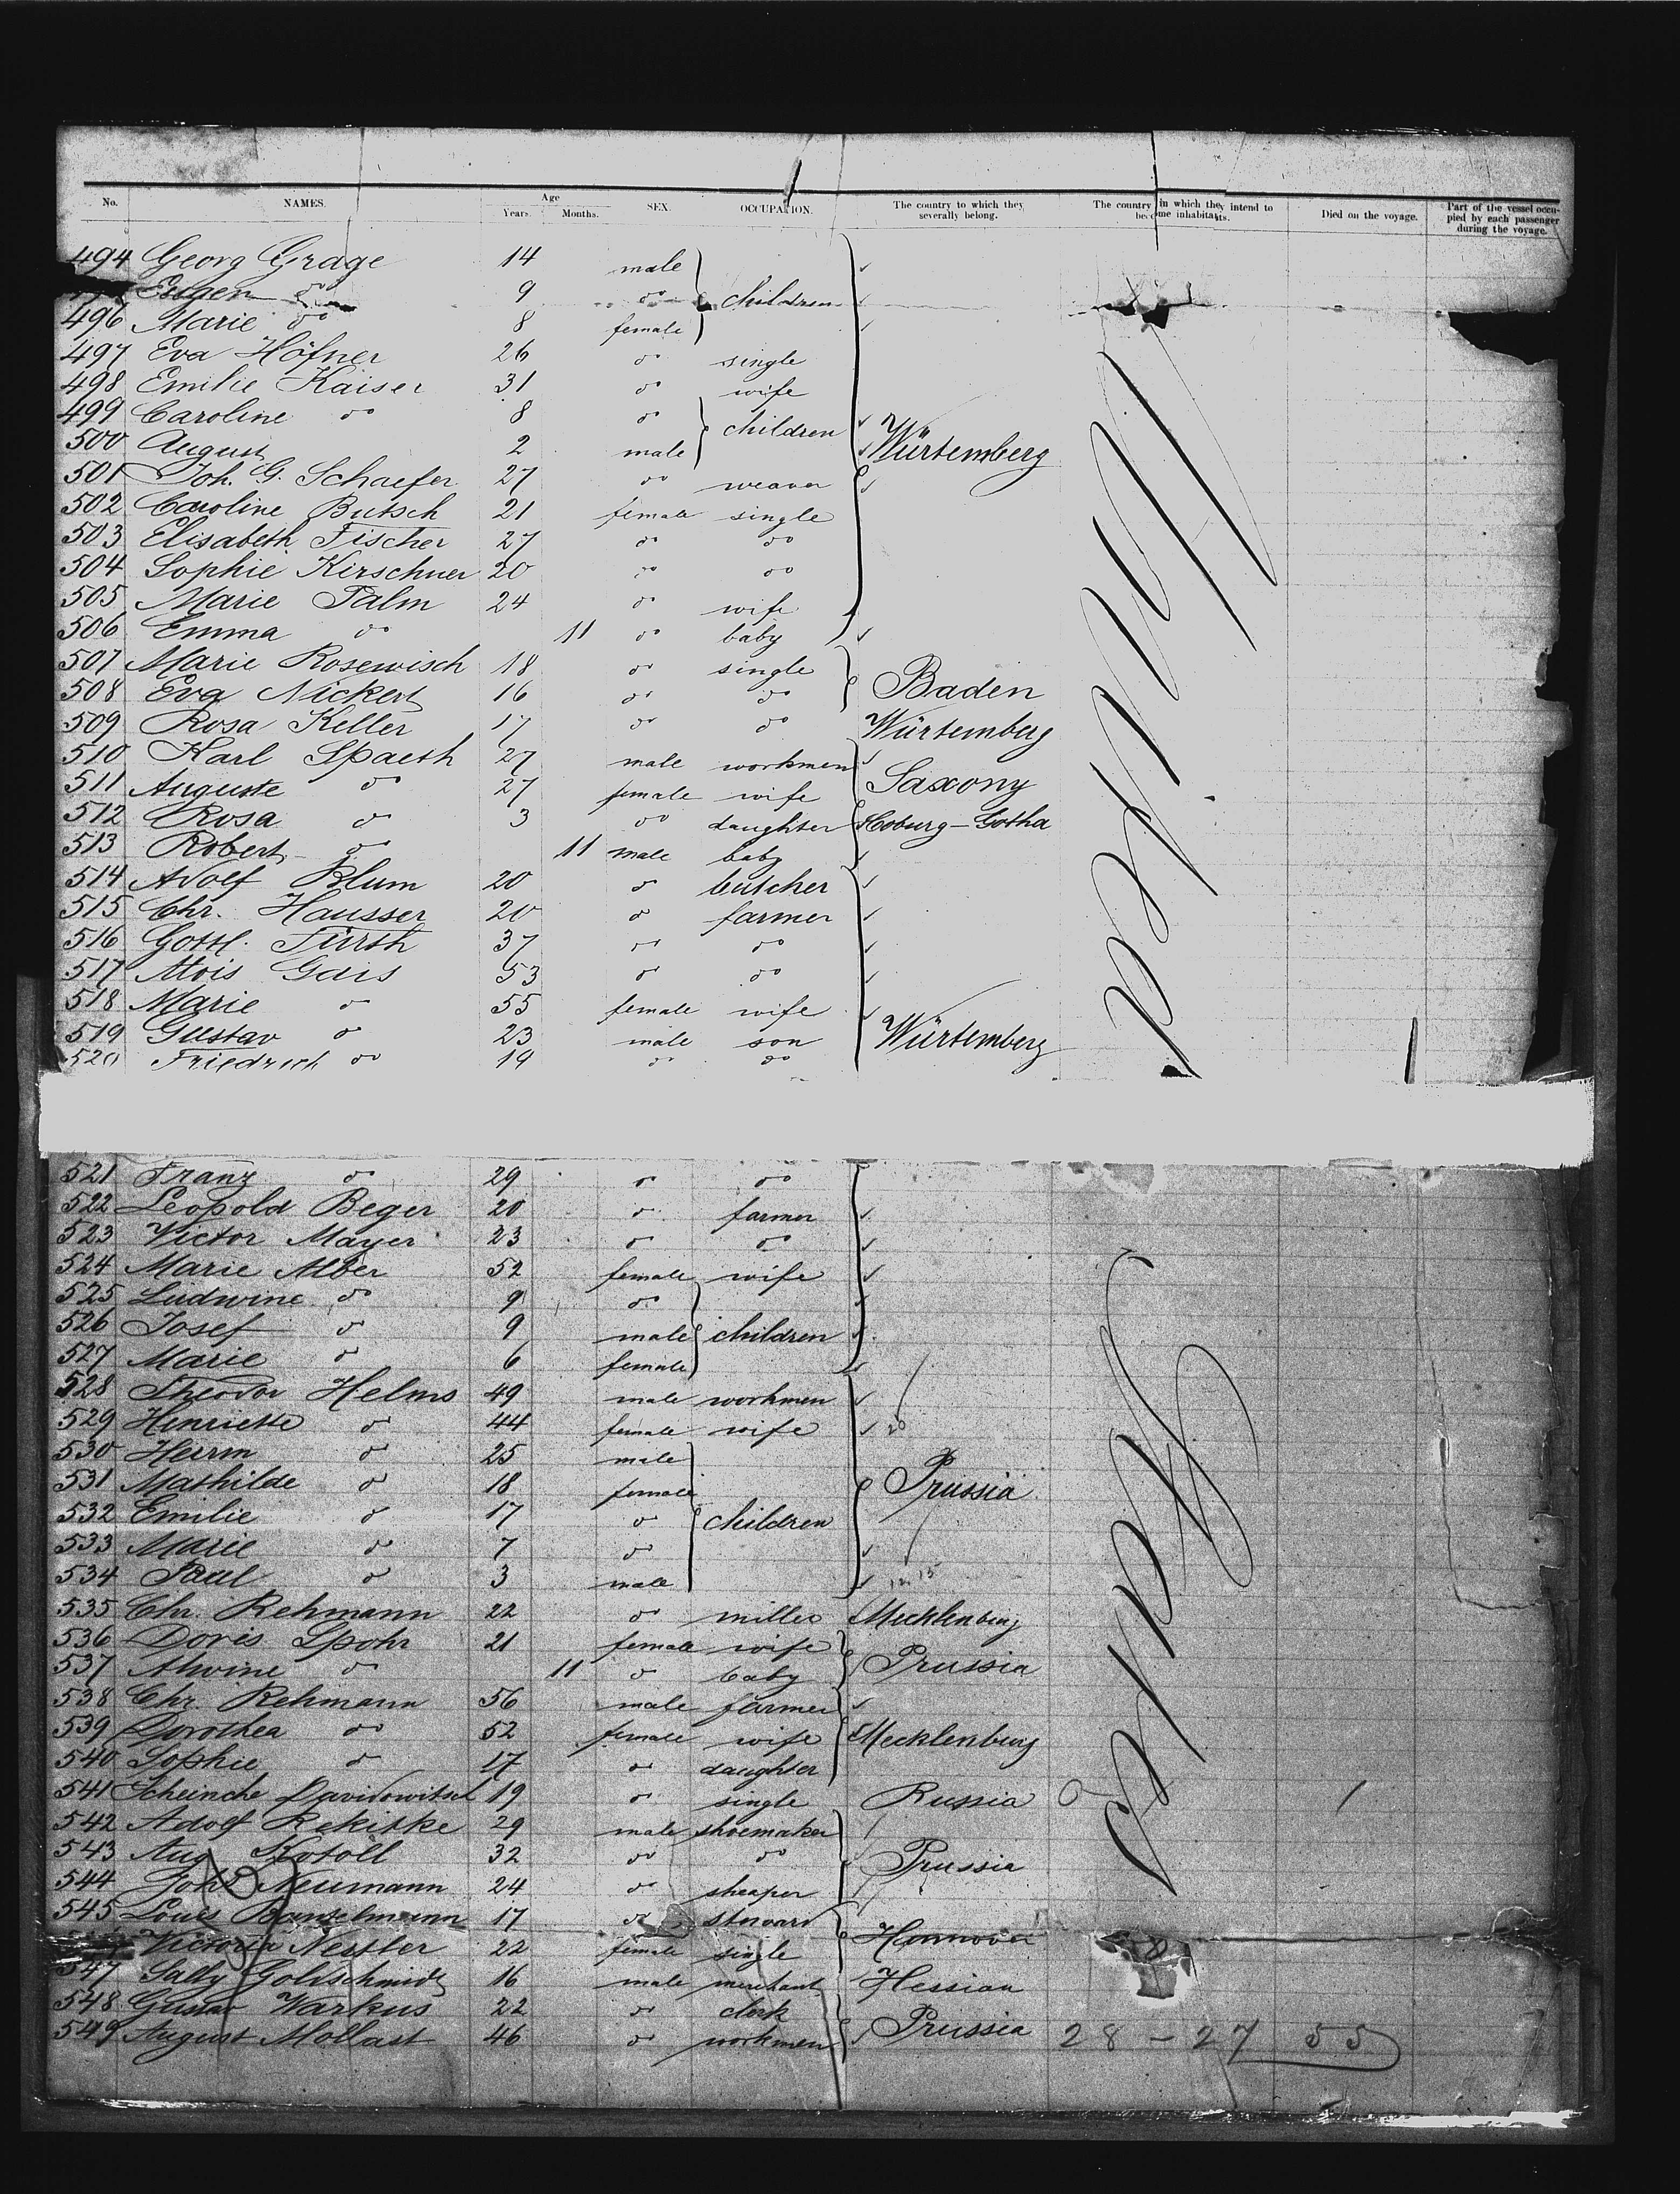 No. NAMES. Age Years. Months. SEX. OCCUPATION. The country to which they severally belong. The country in which they intend to become inhabitants. Died on the voyage. Part of the vessel occupied by each passenger during the voyage.
494 Georg Grage 14 male
Eugen do 9 do children
496 Marie do 8 female
497 Eva Höfner 26 do single
498 Emilie Kaiser 31 do wife
499 Caroline do 8 do children
500 August 2 male Würtemberg
501 Joh. G. Schaefer 27 do weaver
502 Caroline Butsch 21 female single
503 Elisabeth Fischer 27 do do
504 Sophie Kirschner 20 do do
505 Marie Palm 24 do wife
506 Emma do 11 do baby
507 Marie Rosewisch 18 do single
508 Eva Nickert 16 do do Baden
509 Rosa Keller 17 do do Würtemberg
510 Karl Spaeth 27 male workmen
511 Auguste do 27 female wife Saxony
512 Rosa do 3 do daughter Coburg-Gotha
513 Robert do 11 male baby
514 Adolf Blum 20 do butcher
515 Chr. Hausser 20 do farmer
516 Gottl. Fürth 37 do do
517 Alois Gais 53 do do
518 Marie do 55 female wife
519 Gustav do 23 male son Würtemberg
520 Friedrich do 19 do do
521 Franz do 29 do do
522 Leopold Beger 20 do farmer
523 Victor Mayer 23 do do
524 Marie Alber 52 female wife
525 Ludwine do 9 do
526 Josef do 9 male children
527 Marie do 6 female
528 Theodor Helms 49 male workmen
529 Henriette do 44 female wife 20
530 Herrm do 25 male
531 Mathilde do 18 female Prussia
532 Emilie do 17 do children
533 Marie do 7 do
534 Paul do 3 male
535 Chr. Rehmann 22 do miller Mecklenburg
536 Doris Spohr 21 female wife
537 Alwine do 11 do baby Prussia
538 Chr. Rehmann 56 male farmer
539 Dorothea do 52 female wife Mecklenburg
540 Sophie do 17 do daughter
541 Scheinche Davidowitsch 19 do single Russia
542 Adolf Rekitke 29 male shoemaker
543 Aug. Kotoll 32 do do Prussia
544 Neumann 24 do sheaper
545 Louis Banselmann 17 do steward
Victoria Nestler 22 female single Hannover
547 Sally Goldschmidt 16 male merchant Hessian
548 Gustav Warkus 22 do clerk
549 August Mollast 46 do workmen Prussia 28 - 27 55